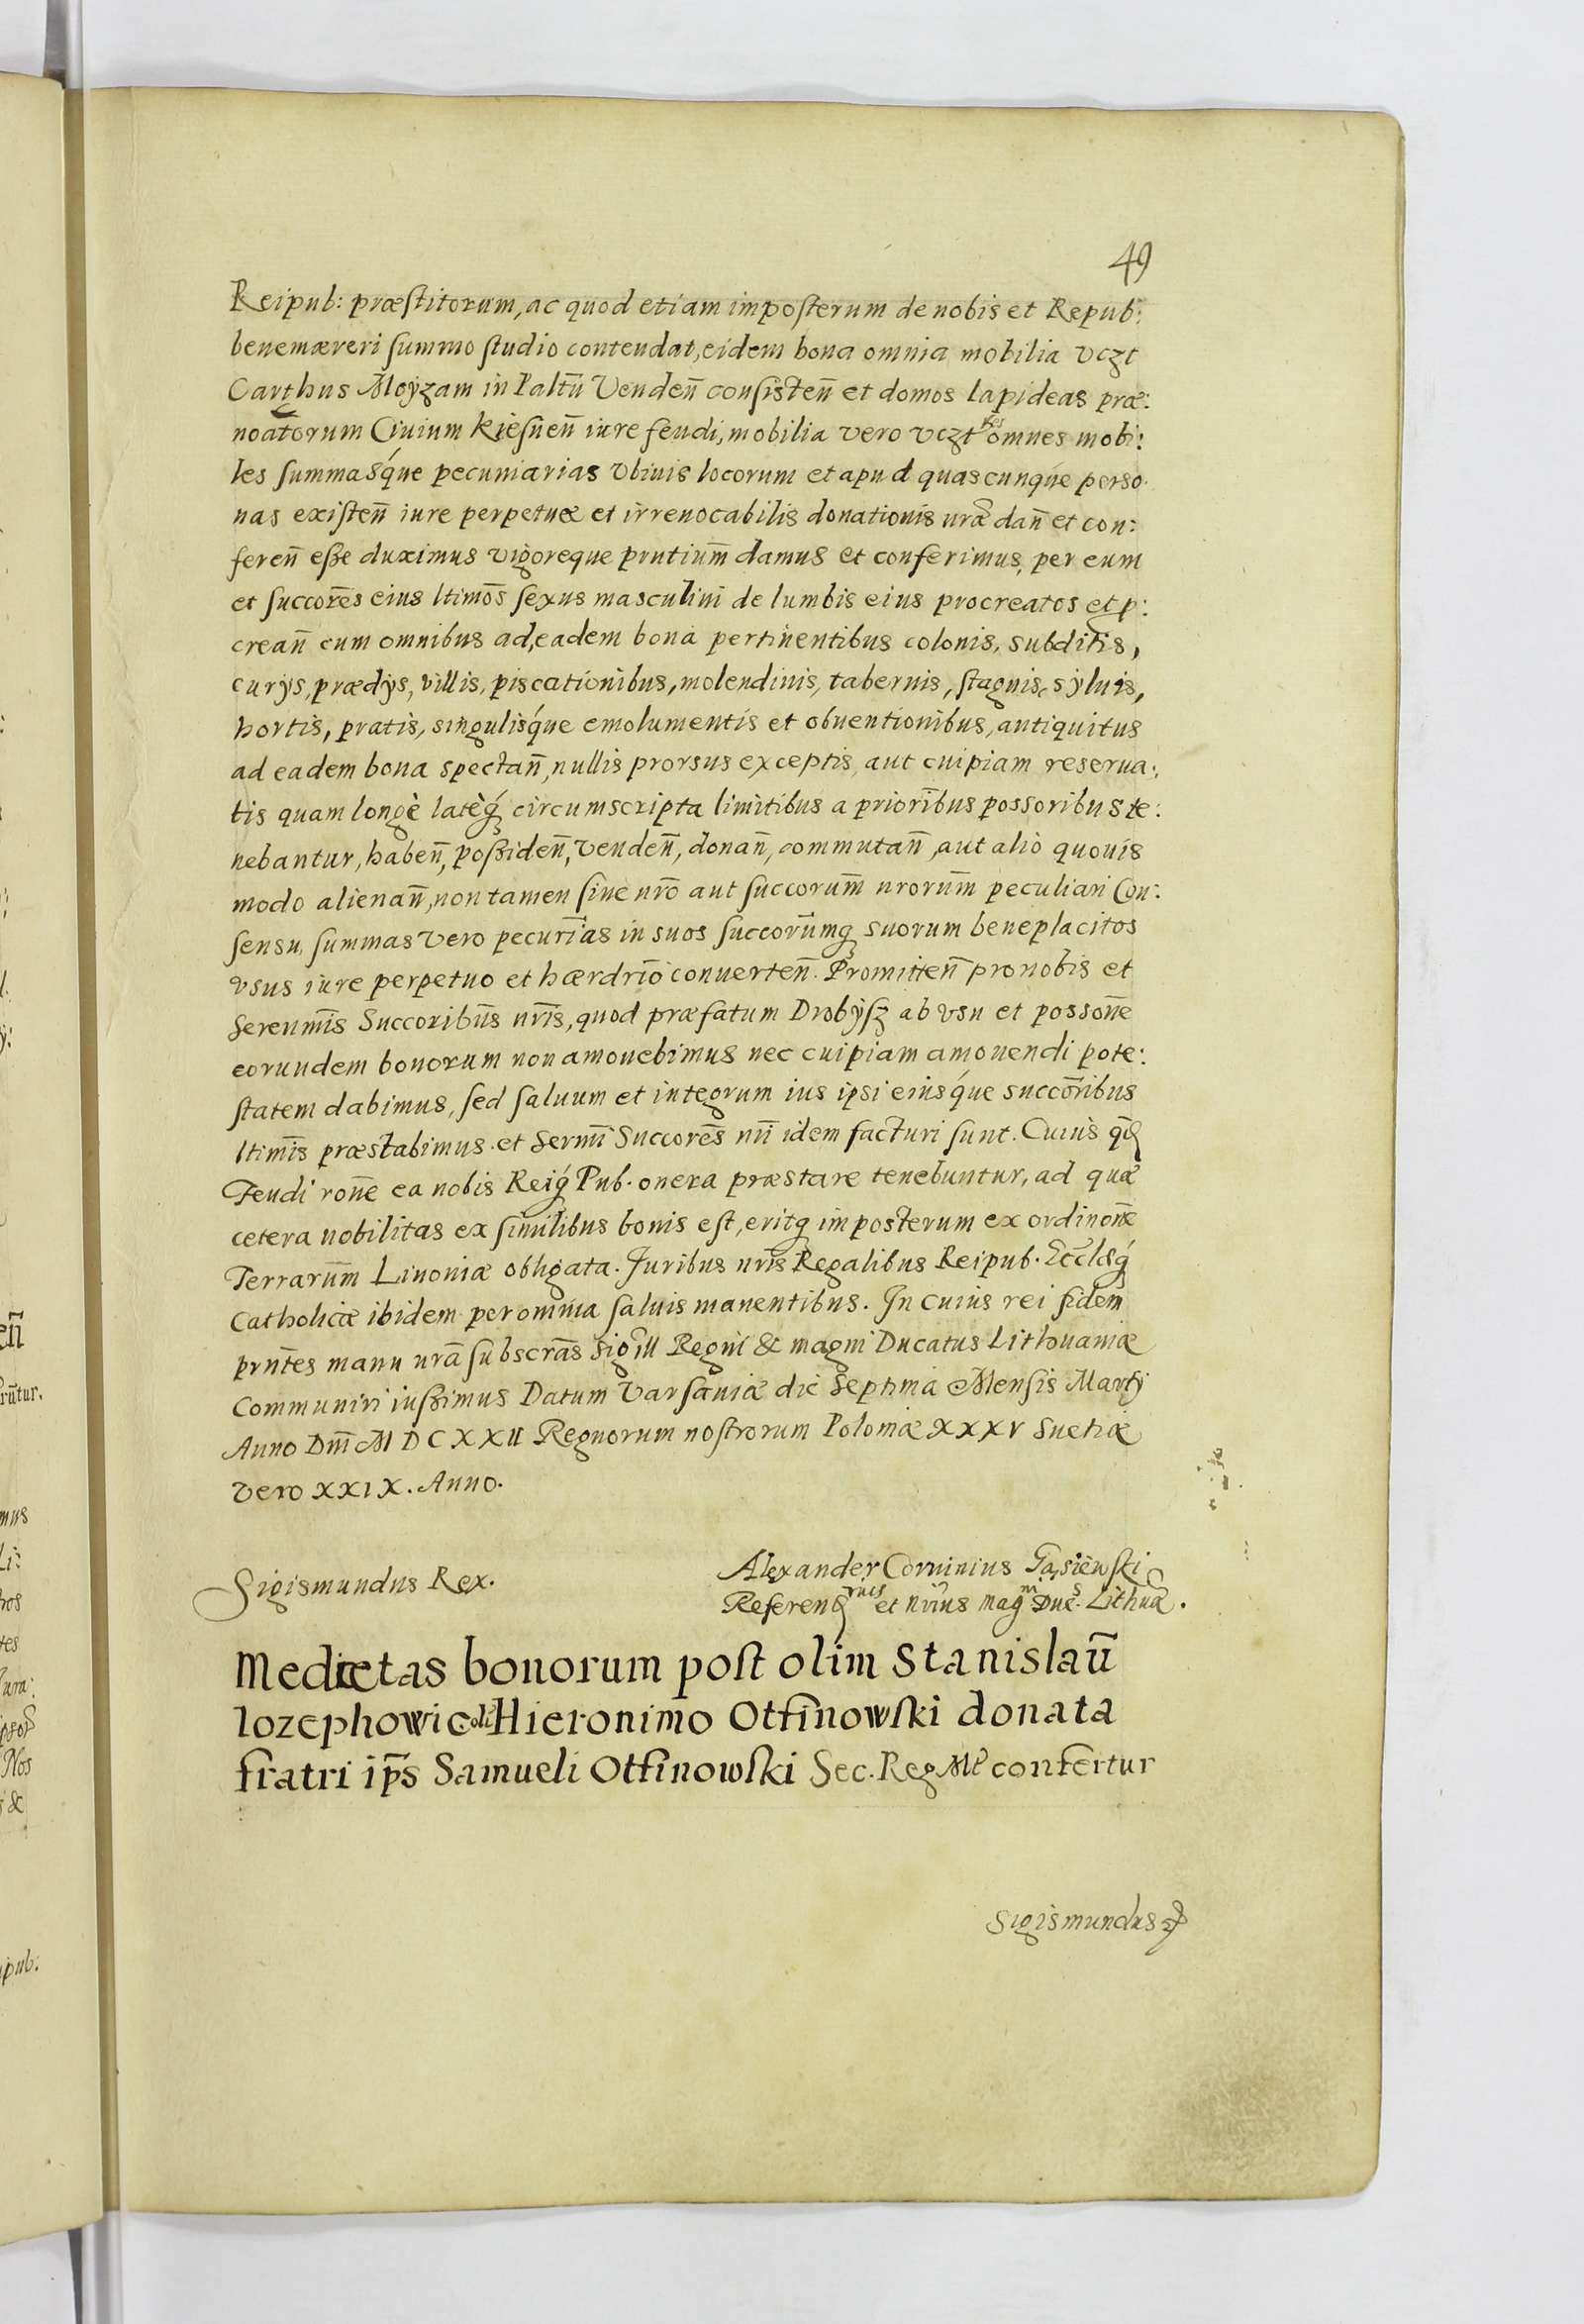 49
Reipub: præstitorum, ac quod etiam imposterum de nobis et Repub:
benemæreri summo studio contendat, eidem bona omnia mobilia vczt
Carthus Moÿzam in Paltū Vendeñ consisteñ et domos lapideas præ:
noatorum Ciuium Kiesneñ iure feudi, mobilia vero vczt res omnes mobi:
les summasq́ue pecuniarias vbiuis locorum et apud quascunque perso
nas existeñ iure perpetuæ et irreuocabilis donationis nræ dañ et con:
fereñ esse duximus vigoreque pñtium damus et conferimus, per eum
et succorēs eius ltimōs sexus masculini de lumbis eius procreatos et p:
creañ cum omnibus ad eadem bona pertinentibus colonis, subditis,
curÿs, prædÿs, villis, piscationibus, molendinis, tabernis, stagnis, syluis,
hortis, pratis, singulisq́ue emolumentis et obuentionibus, antiquitus
ad eadem bona spectañ, nullis prorsus exceptis, aut cuipiam reserua:
tis quam longè latèq́ circumscripta limitibus a prioribus possoribus te:
nebantur, habeñ, possideñ, vendeñ, donañ, commutañ, aut alio quouis
modo alienañ, non tamen sine nrō aut succorum̄ nrorum̄ peculiari Con:
sensu, summas vero pecuñias in suos succorum̄q suorum beneplacitos
vsus iure perpetuo et hærdriō conuerteñ. Promitteñ pro nobis et
Serenmīs Succoribūs nrīs, quod præfatum Drobÿsz ab vsu et possone
eorundem bonorum non amouebimus nec cuipiam amouendi pote:
statem dabimus, sed saluum et integrum ius ipsi eiusq́ue succōribus
ltimīs præstabimus. et Sermī Succorēs nrī idem facturi sunt. Cuius qđ
Feudi rone ea nobis Reiq́ Pub. onera præstare tenebuntur, ad quæ
cetera nobilitas ex similibus bonis est, eritq imposterum ex ordinone
Terrarum̄ Liuoniæ obligata. Juribus nrīs Regalibus Reipub. Ecclæq́
Catholicæ ibidem per omnia saluis manentibus. In cuius rei fidem
pñtes manu nrā subscrās Sigill Regni & magni Ducatus Lithuaniæ
Communiri iussimus Datum Varsauiæ die Septima Mensis Martÿ
Anno Dm̄ M D C X X II Regnorum nostrorum Poloniæ X X X V Suetiæ
vero XXIX. Anno.
Sigismundus Rex.
Alexander Coruinius Gąsiewski
Referenđ rius et Nrius magni Duc. Lithuæ.
Medietas bonorum post olim Stanislaū
Iozephowic oli Hieronimo Otfinowski donata
fratri ip̄s Samueli Otfinowski Sec. Reg Mt̄ confertur
Sigismundus